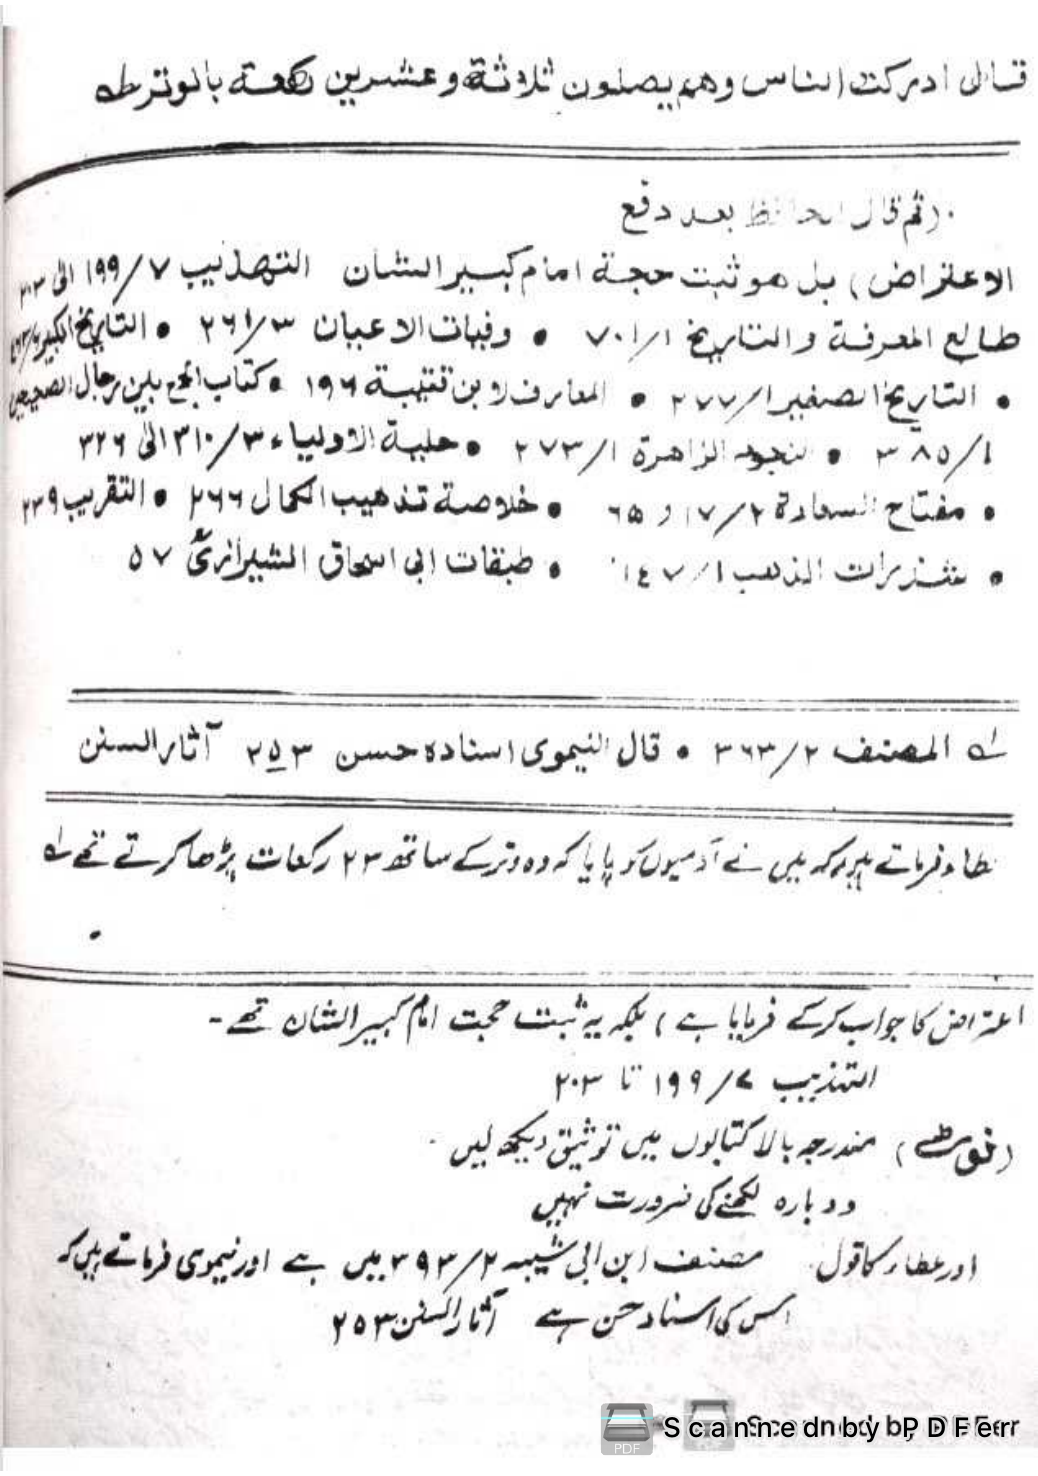 قال ادركت الناس وهم يصلون ثلاثة و عشرين ركعة بالوتر له
(ثم قال الحافظ بعد دفع
الاعتراض) بل هو ثبت حجة امام كبير الشان التهذيب ٧/١٩٩ الى ٢٠٣
طالع المعرفة والتاريخ ١/٧٠١ • وفيات الاعيان ٣/٢٦١ • التاريخ الكبير
• التاريخ الصغير ١/٢٧٧ • المعارف لابن قتيبة ١٩٦ • كتاب الجمع بين رجال الصحيحين
١/٣٨٥ • النجوم الزاهرة ١/٢٧٣ • حلية الاولياء ٣/٣١٠ الى ٣٢٦
• مفتاح السعادة ٢/١٧ و ٦٥ • خلاصة تذهيب الكمال ٢٦٦ • التقريب ٢٣٩
• شذرات الذهب ١/١٤٧ • طبقات ابی اسحاق الشیرازیؒ ٥٧
له المصنف ٢/٣٦٣ • قال النیموی اسناده حسن ٢٥٣ آثار السنن
عطاء فرماتے ہیں کہ میں نے آدمیوں کو پایا کہ وہ وتر کے ساتھ ۲۳ رکعات پڑھا کرتے تھے لہ
اعتراض کا جواب کرکے فرمایا ہے) بلکہ یہ ثبت حجت امام کبیر الشان تھے۔
التہذیب ۷/۱۹۹ تا ۲۰۳
(نوٹ) مندرجہ بالا کتابوں میں توثیق دیکھ لیں۔
دوبارہ لکھنے کی ضرورت نہیں
اور عطاء کا قول مصنف ابن ابی شیبہ ۲/۳۹۳ میں ہے اور نیموی فرماتے ہیں کہ
اس کی اسناد حسن ہے آثار السنن ۲۵۳